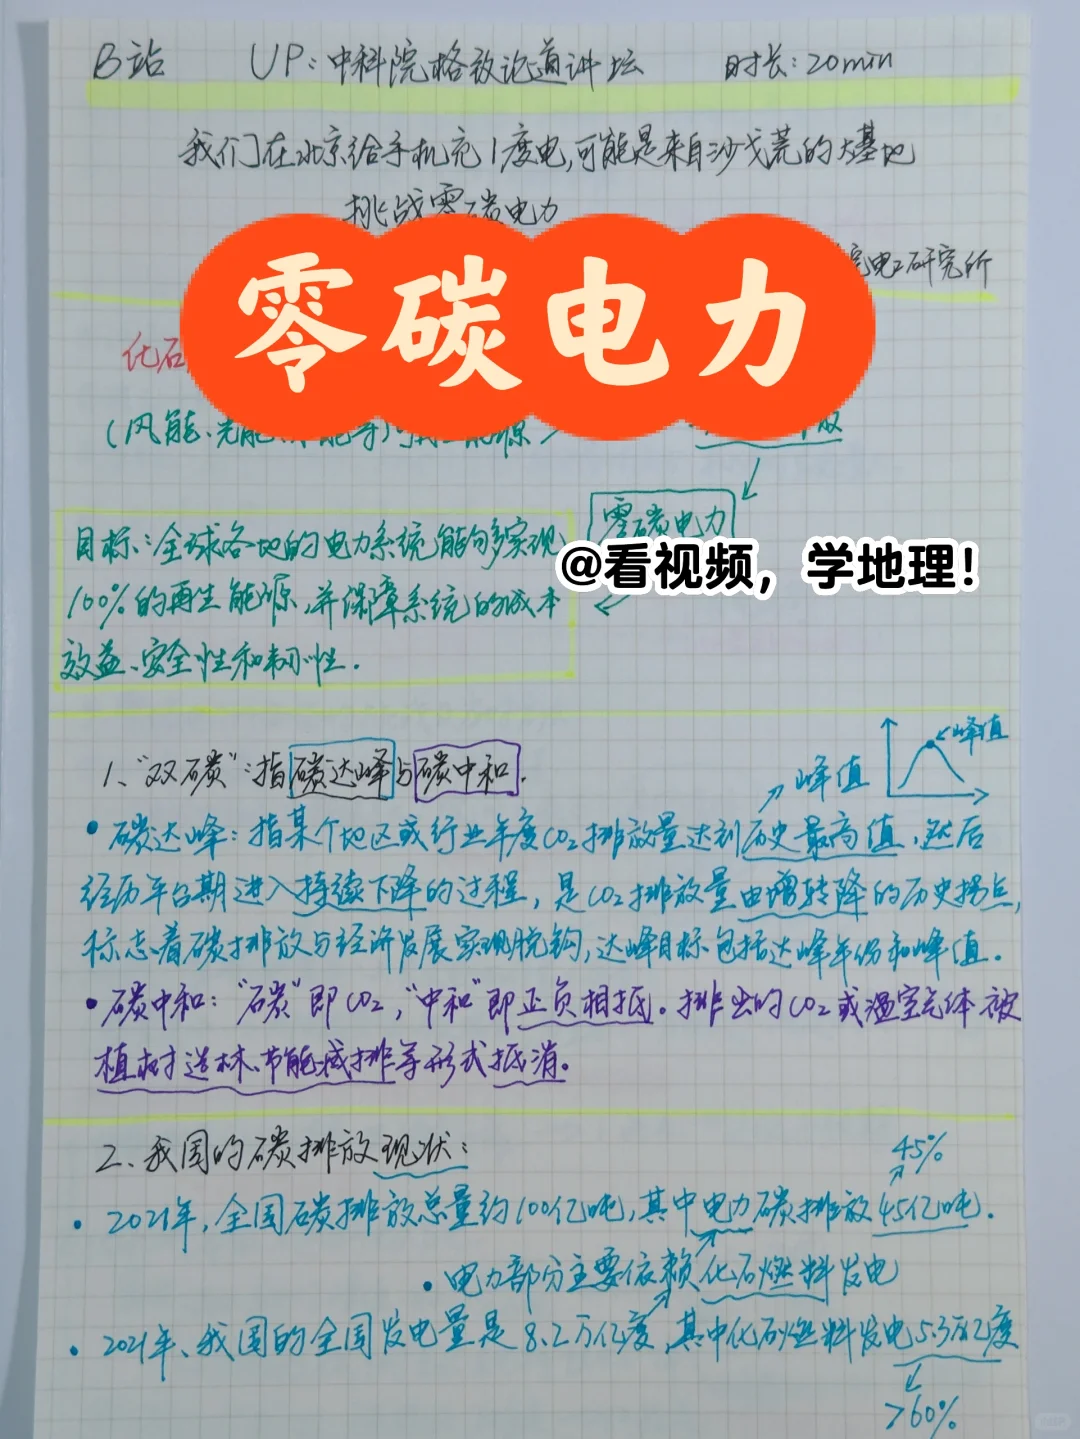 B站 UP：中科院格致论道讲坛 时长：20min
我们在北京给手机充1度电，可能是来自沙戈荒的大基地
挑战零碳电力
电工研究所
零碳电力
化石
（风能、光能
零碳电力
@看视频，学地理！
目标：全球各地的电力系统能够实现
100%的再生能源，并保障系统的成本
效益、安全性和韧性．
1、“双碳”：指碳达峰与碳中和．
峰值
峰值
• 碳达峰：指某个地区或行业年度CO₂排放量达到历史最高值，然后
经历平台期进入持续下降的过程，是CO₂排放量由增转降的历史拐点，
标志着碳排放与经济发展实现脱钩，达峰目标包括达峰年份和峰值．
• 碳中和：“碳”即CO₂，“中和”即正负相抵。排出的CO₂或温室气体被
植树造林、节能减排等形式抵消。
2、我国的碳排放现状：
45%
• 2021年，全国碳排放总量约100亿吨，其中电力碳排放45亿吨．
• 电力部分主要依赖化石燃料发电
• 2021年、我国的全国发电量是8.2万亿度，其中化石燃料发电5.3万亿度
>60%